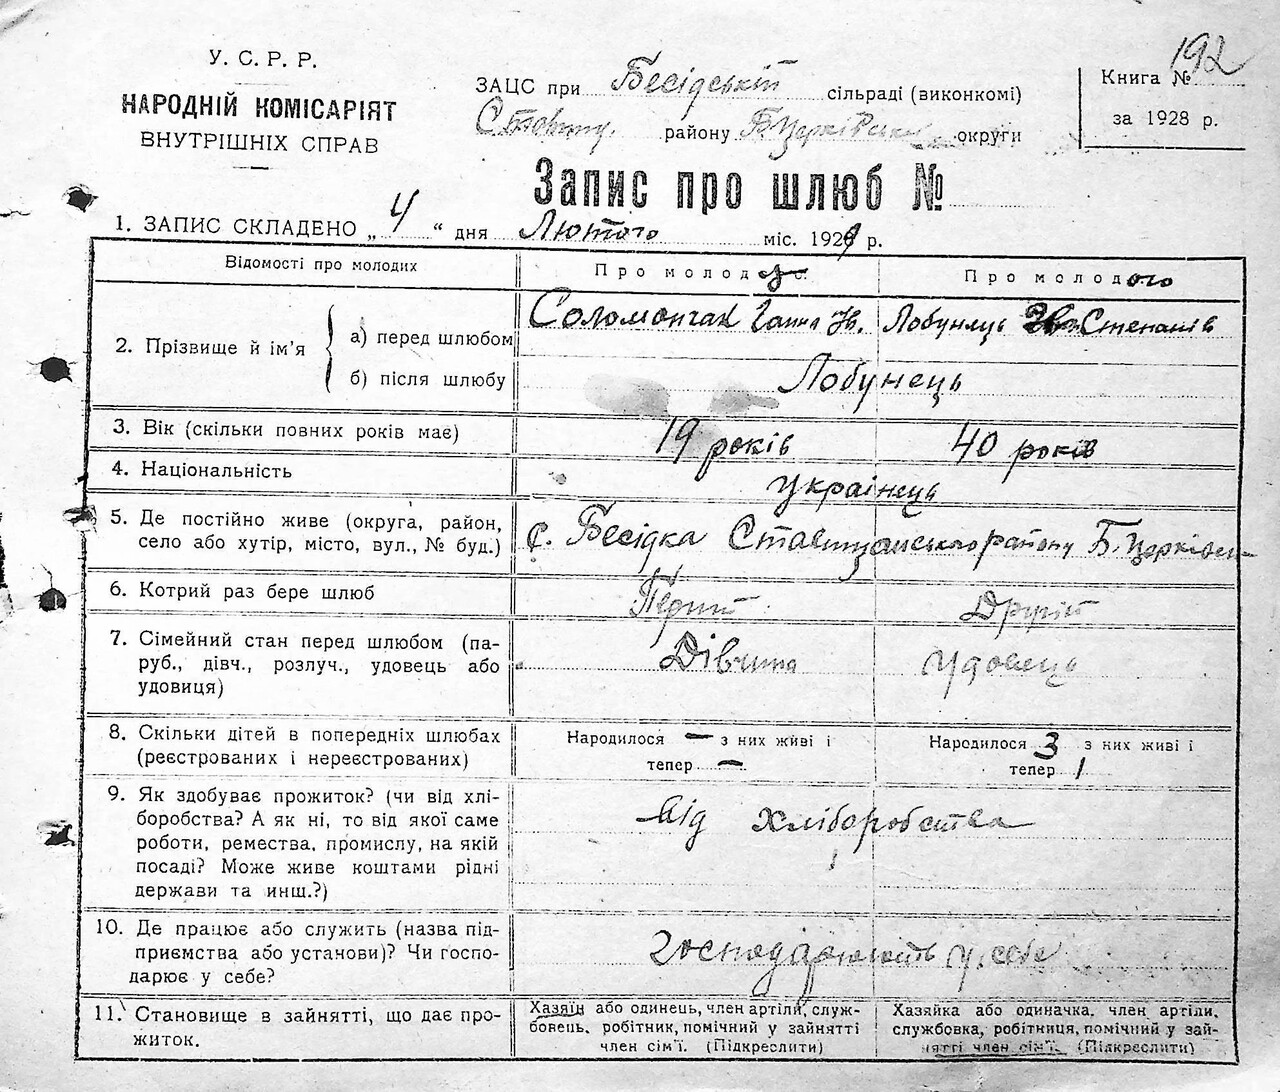 192
У. С. Р. Р.
НАРОДНІЙ КОМІСАРІЯТ
ВНУТРІШНІХ СПРАВ
ЗАЦС при Бесідській сільраді (виконкомі)
району Б. Церківськ округи
Книга №
за 1928 р.
Запис про шлюб №
1. ЗАПИС СКЛАДЕНО „ 4 “ дня Лютого міс. 1929 р.
Відомості про молодих
Про молоду
Про молодого
2. Прізвище й ім’я
а) перед шлюбом
Соломончак Ганна Ів.
Лобунець Степанів
б) після шлюбу
Лобунець
3. Вік (скільки повних років має)
19 років
40 років
4. Національність
українець
5. Де постійно живе (округа, район,
село або хутір, місто, вул., № буд.)
с. Бесідка Ставищанського району Б. Церківськ
6. Котрий раз бере шлюб
Перший
Другий
7. Сімейний стан перед шлюбом (па-
руб., дівч., розлуч., удовець або
удовиця)
Дівчина
Удовець
8. Скільки дітей в попередніх шлюбах
(реєстрованих і нереєстрованих)
Народилося — з них живі і
тепер —
Народилося 3 з них живі і
тепер 1
9. Як здобуває прожиток? (чи від хлі-
боробства? А як ні, то від якої саме
роботи, ремества, промислу, на якій
посаді? Може живе коштами рідні
держави та инш.?)
від хліборобства
10. Де працює або служить (назва під-
приємства або установи)? Чи госпо-
дарює у себе?
Господарюють у себе
11. Становище в зайнятті, що дає про-
житок.
Хазяїн або одинець, член артілі, служ-
бовець, робітник, помічний у зайнятті
член сім’ї. (Підкреслити)
Хазяйка або одиначка, член артіли,
службовка, робітниця, помічний у зай-
нятті член сім’ї. (Підкреслити)